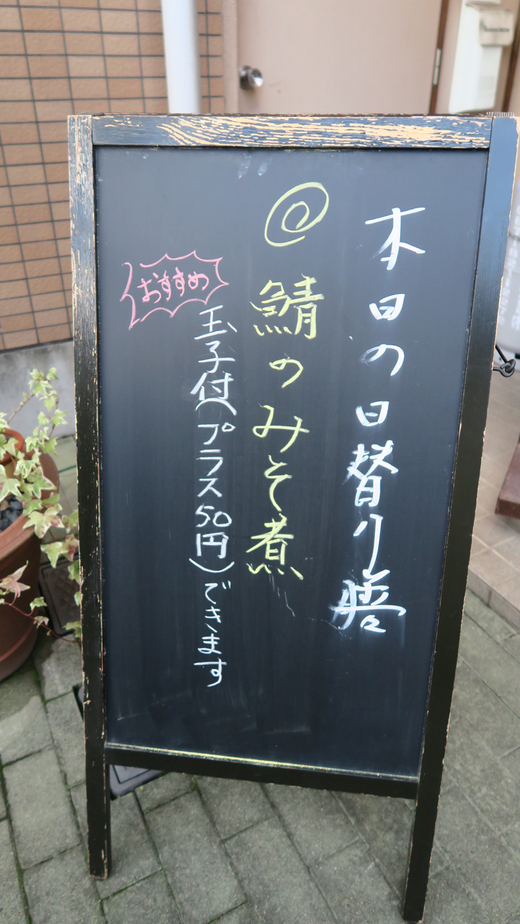 本日の日替り膳
◎ 鯖のみそ煮
おすすめ
玉子付(プラス50円)できます